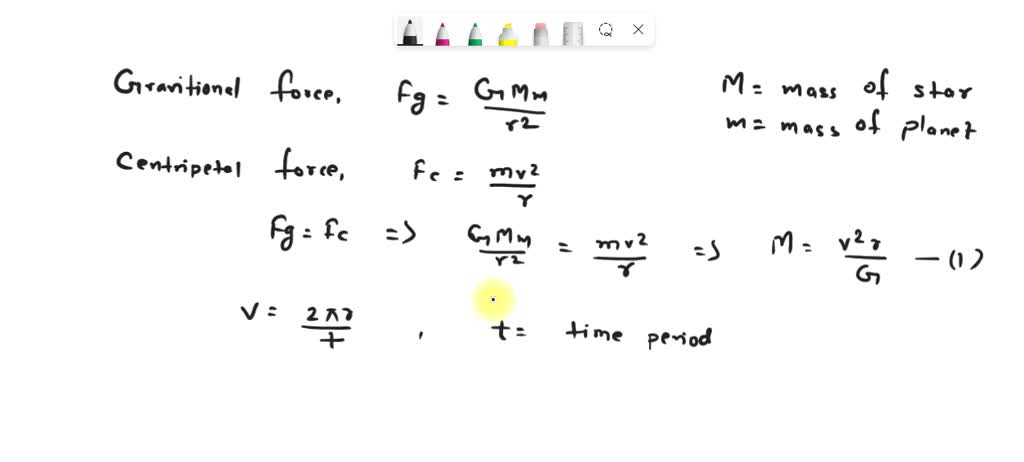 Gravitional force, Fg = GMm/r2
M = mass of star
m = mass of planet
Centripetal force, Fc = mv2/r
Fg = Fc => GMm/r2 = mv2/r => M = v2r/G — (1)
V = 2πr/t , t = time period